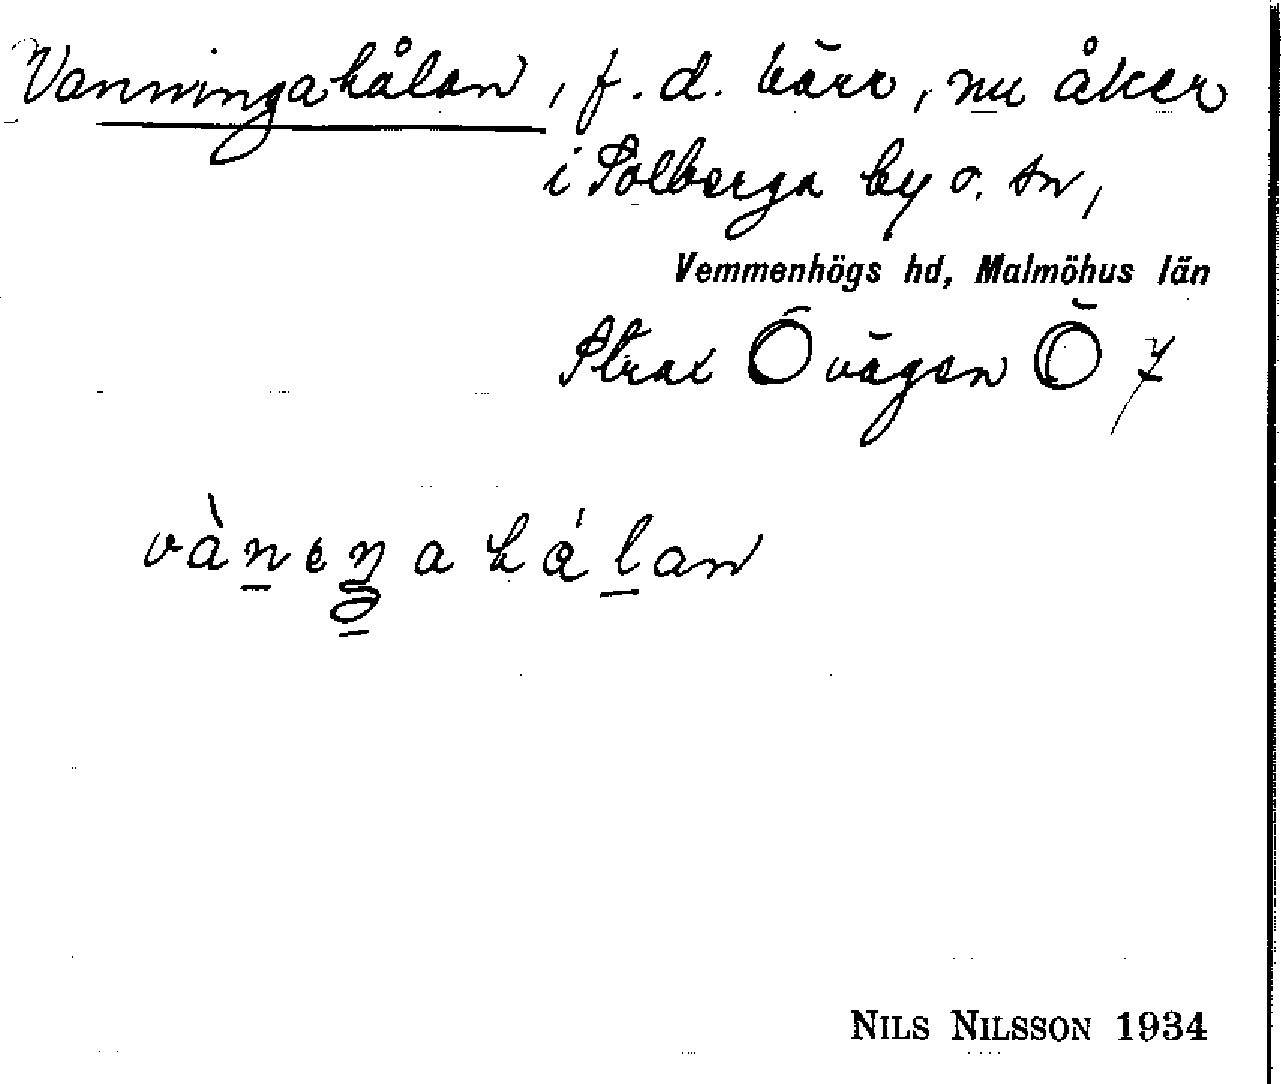 Vanningahålan, f. d. kärr, nu åker
i Solberga by o. sn,
Vemmenhögs hd, Malmöhus län
Strax Ö vägen Ö 7
vàneŋahá̱lan
NILS NILSSON 1934